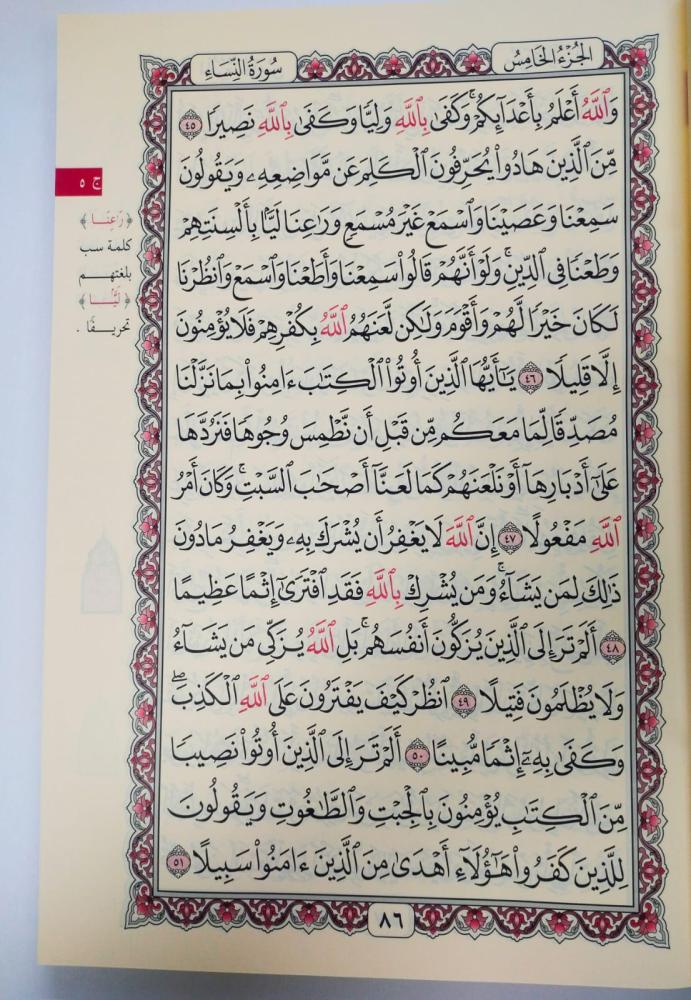 الجزء الخامس
سورة النساء
وَٱللَّهُ أَعْلَمُ بِأَعْدَآئِكُمْۚ وَكَفَىٰ بِٱللَّهِ وَلِيًّا وَكَفَىٰ بِٱللَّهِ نَصِيرًا ٤٥
مِّنَ ٱلَّذِينَ هَادُوا۟ يُحَرِّفُونَ ٱلْكَلِمَ عَن مَّوَاضِعِهِۦ وَيَقُولُونَ
سَمِعْنَا وَعَصَيْنَا وَٱسْمَعْ غَيْرَ مُسْمَعٍ وَرَٰعِنَا لَيًّۢا بِأَلْسِنَتِهِمْ
وَطَعْنًا فِى ٱلدِّينِۚ وَلَوْ أَنَّهُمْ قَالُوا۟ سَمِعْنَا وَأَطَعْنَا وَٱسْمَعْ وَٱنظُرْنَا
لَكَانَ خَيْرًا لَّهُمْ وَأَقْوَمَ وَلَٰكِن لَّعَنَهُمُ ٱللَّهُ بِكُفْرِهِمْ فَلَا يُؤْمِنُونَ
إِلَّا قَلِيلًا ٤٦ يَٰٓأَيُّهَا ٱلَّذِينَ أُوتُوا۟ ٱلْكِتَٰبَ ءَامِنُوا۟ بِمَا نَزَّلْنَا
مُصَدِّقًا لِّمَا مَعَكُم مِّن قَبْلِ أَن نَّطْمِسَ وُجُوهًا فَنَرُدَّهَا
عَلَىٰٓ أَدْبَارِهَآ أَوْ نَلْعَنَهُمْ كَمَا لَعَنَّآ أَصْحَٰبَ ٱلسَّبْتِۚ وَكَانَ أَمْرُ
ٱللَّهِ مَفْعُولًا ٤٧ إِنَّ ٱللَّهَ لَا يَغْفِرُ أَن يُشْرَكَ بِهِۦ وَيَغْفِرُ مَا دُونَ
ذَٰلِكَ لِمَن يَشَآءُۚ وَمَن يُشْرِكْ بِٱللَّهِ فَقَدِ ٱفْتَرَىٰٓ إِثْمًا عَظِيمًا
٤٨ أَلَمْ تَرَ إِلَى ٱلَّذِينَ يُزَكُّونَ أَنفُسَهُمۚ بَلِ ٱللَّهُ يُزَكِّى مَن يَشَآءُ
وَلَا يُظْلَمُونَ فَتِيلًا ٤٩ ٱنظُرْ كَيْفَ يَفْتَرُونَ عَلَى ٱللَّهِ ٱلْكَذِبَۖ
وَكَفَىٰ بِهِۦٓ إِثْمًا مُّبِينًا ٥٠ أَلَمْ تَرَ إِلَى ٱلَّذِينَ أُوتُوا۟ نَصِيبًا
مِّنَ ٱلْكِتَٰبِ يُؤْمِنُونَ بِٱلْجِبْتِ وَٱلطَّٰغُوتِ وَيَقُولُونَ
لِلَّذِينَ كَفَرُوا۟ هَٰٓؤُلَآءِ أَهْدَىٰ مِنَ ٱلَّذِينَ ءَامَنُوا۟ سَبِيلًا ٥١
ج ٥
﴿رَٰعِنَا﴾
كلمة سب
بلغتهم
﴿لَيًّۢا﴾
تحريفًا .
٨٦